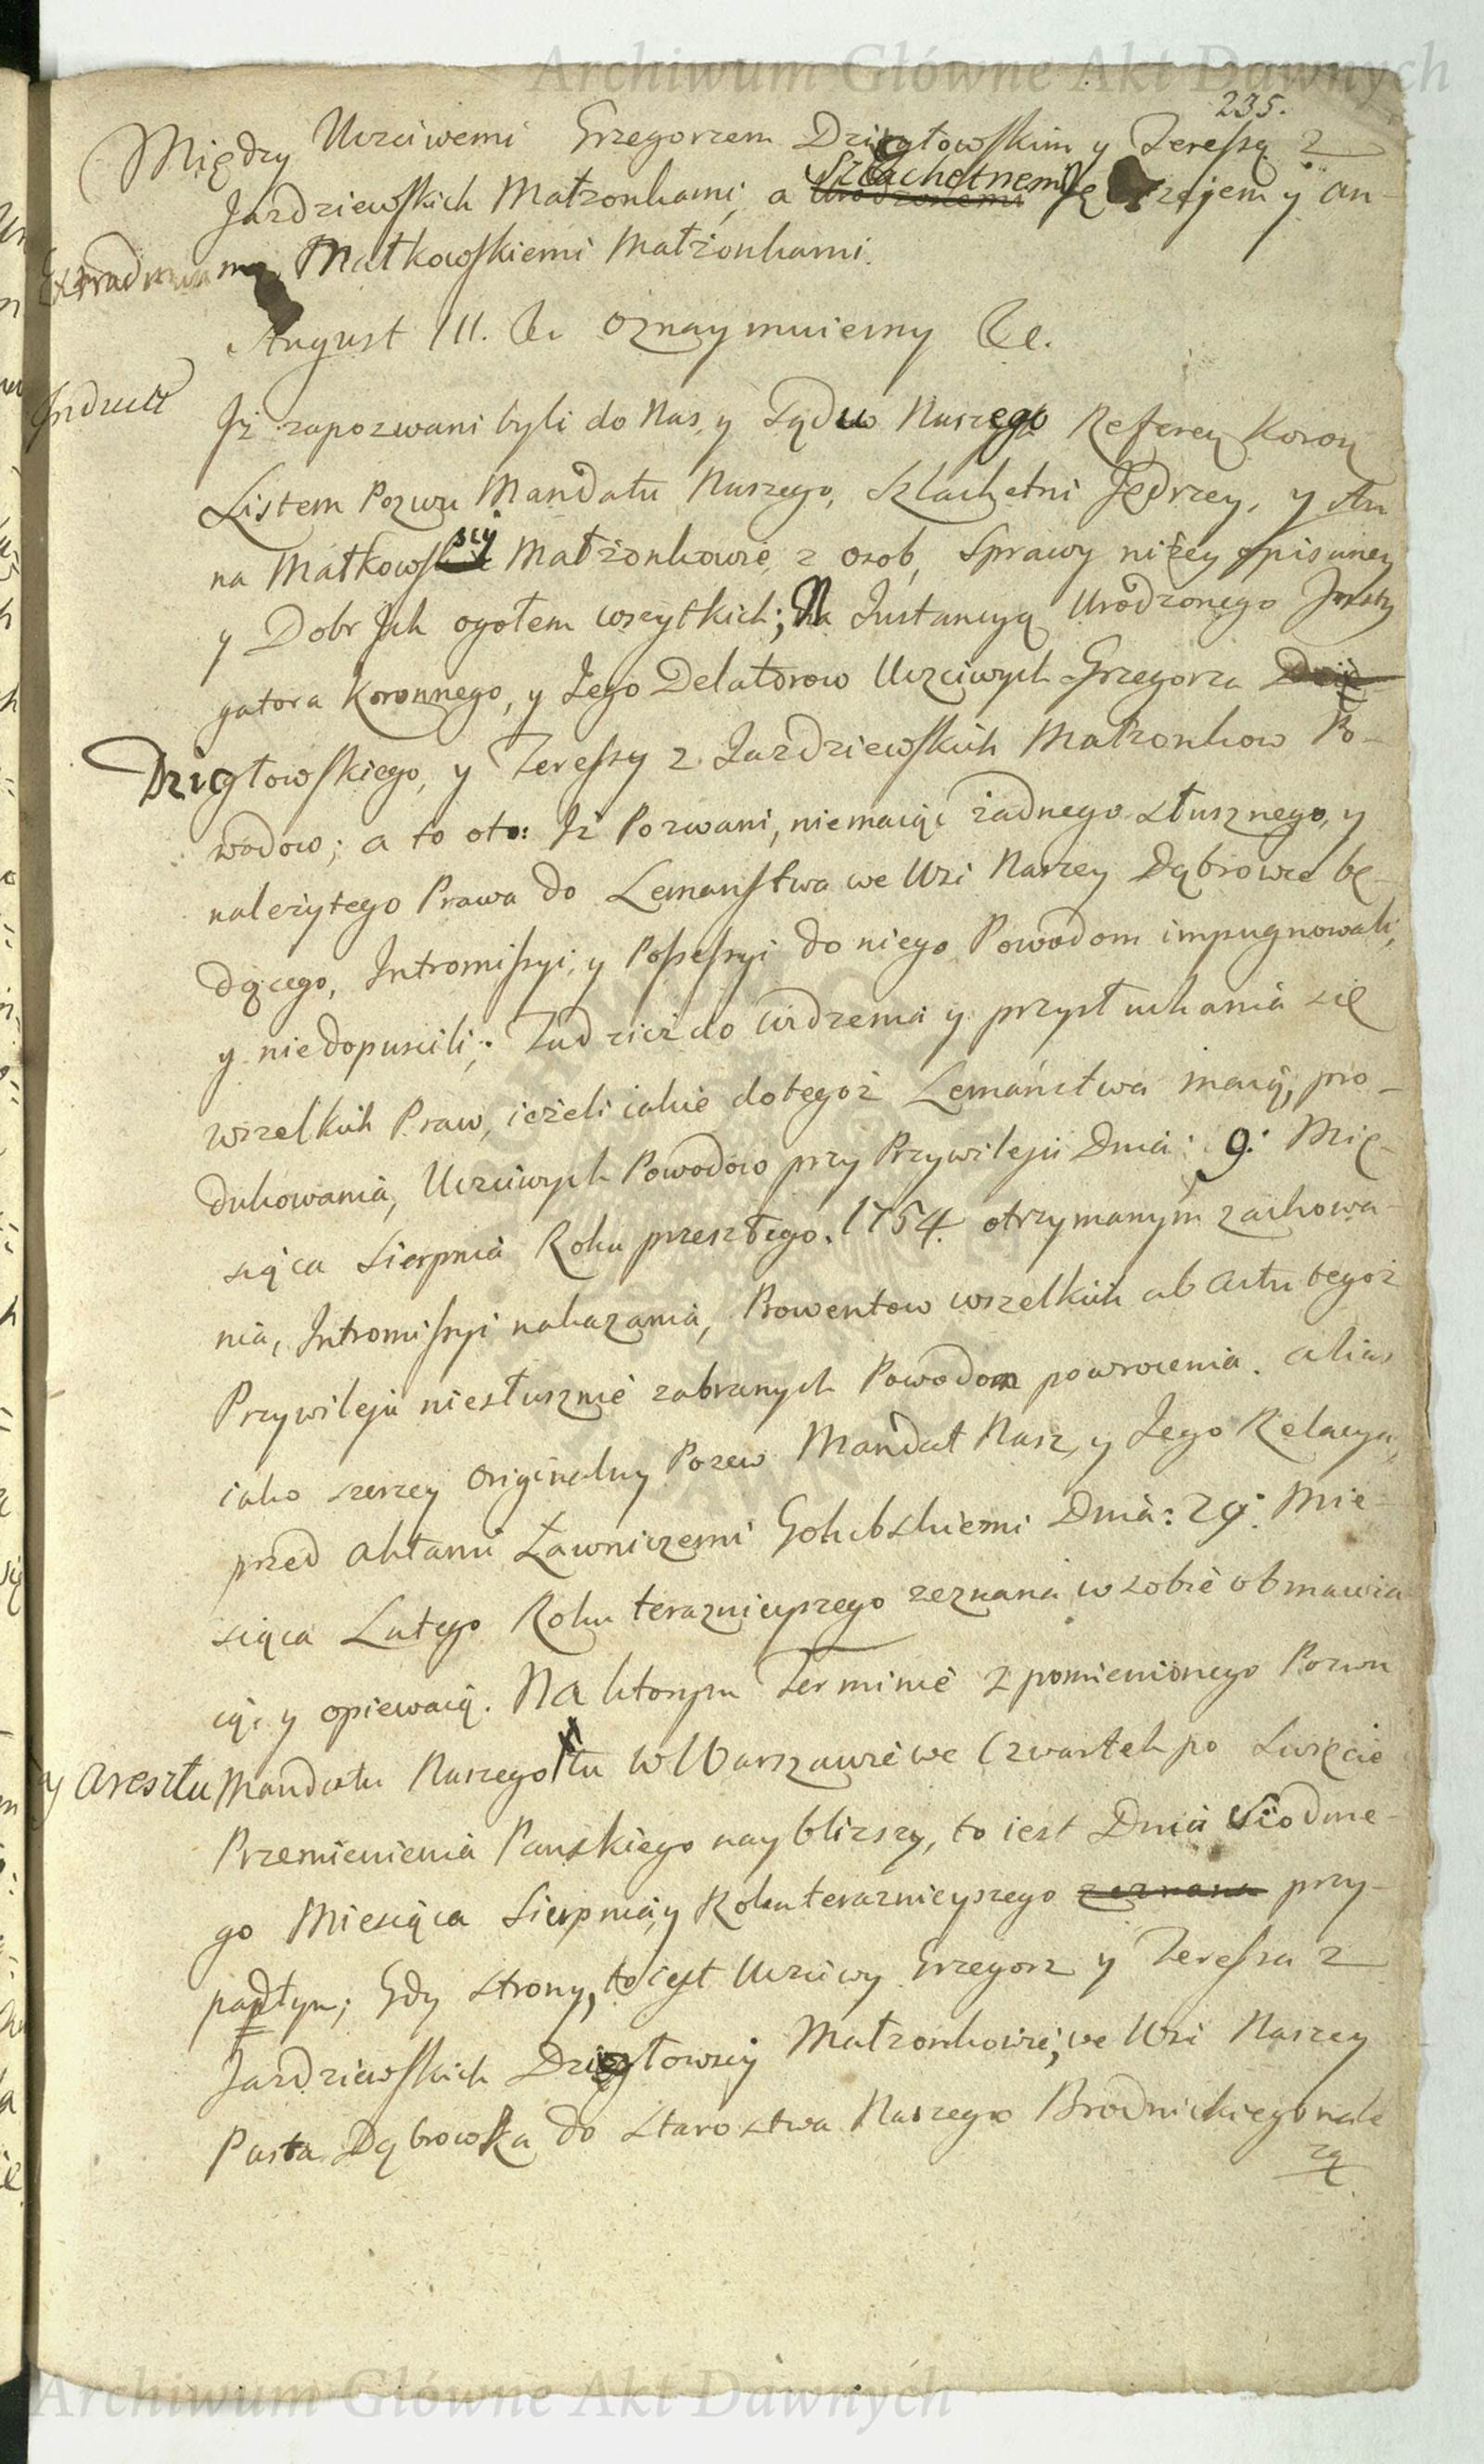 Archiwum Główne Akt Dawnych
235.
Między Uczciwemi Grzegorzem Dzięgłowskim y Teressą z
Jazdziewskich Małzonkami, a Szlachetnemi Urodzonemi Jędrzejem y An-
Extradowana ną Małkowskiemi Małżonkami.
August III. &c Oznaymuiemy &c.
Induct Iż zapozwani byli do Nas, y Sądu Naszego Referen Koron
Listem Pozwu Mandatu Naszego, Szlachetni Jędrzey, y An
na Małkowscy Małżonkowie, z osob, Sprawy niżey opisaney
y Dobr Jch ogołem wszytkich; Na Instancyą Urodzonego Jnsty
gatora Koronnego, y Jego Delatorow Uczciwych Grzegorza Dzię
Dzięgłowskiego, y Teressy z Jazdziewskich Małzonkow Po-
wodow; a to oto: Iż Pozwani, niemaiąc żadnego słusznego, y
należytego Prawa do Lemanstwa we Wsi Naszey Dąbrowce bę-
dącego, Intromissyi, y Possessyi do niego Powodom impugnowali,
y niedopuscili; Tudziesz do widzenia y przysłuchania się
wszelkich Praw, ieżeli iakie dotegoż Lemaństwa maią, pro-
dukowania, Uczciwych Powodow przy Przywileju Dnia: 9: Mię-
siąca Sierpnia Roku przeszłego. 1754. otrzymanym zachowa-
nia, Intromissyi nakazania, Prowentow wszelkich ab actu tegoż
Przywileju niesłusznie zabranych Powodom powrocenia. alias
iako szerzey originalny Pozew Mandat Nasz, y Jego Relacya,
przed Aktami Ławniczemi Golubskiemi Dnia: 29: Mie-
siąca Lutego Roku teraznieyszego zeznana, w sobie obmawia
ią, y opiewaią. Na ktorym Terminie z pomienionego Pozwu
y Aresztu Mandatu Naszego tu w Warszawie we Czwartek po Swięcie
Przemienienia Panskiego naybliższy, to iest Dnia Siodme-
go Miesiąca Sierpnia, y Roku teraznieyszego zeznana przy-
padłym; Gdy Strony, to iest Uczciwy Grzegorz y Teressa z
Jazdziewskich Dzięgłowscy Małzonkowie, we Wsi Naszey
Pusta Dąbrowka do Starostwa Naszego Brodnickiego nale
żą
Archiwum Główne Akt Dawnych